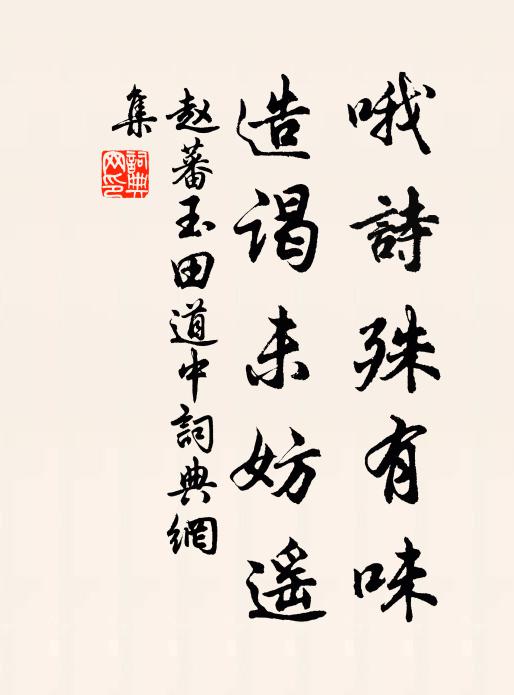 哦詩殊有味
造谒未妨遥
赵蕃玉田道中詞典網
集
詞典網印